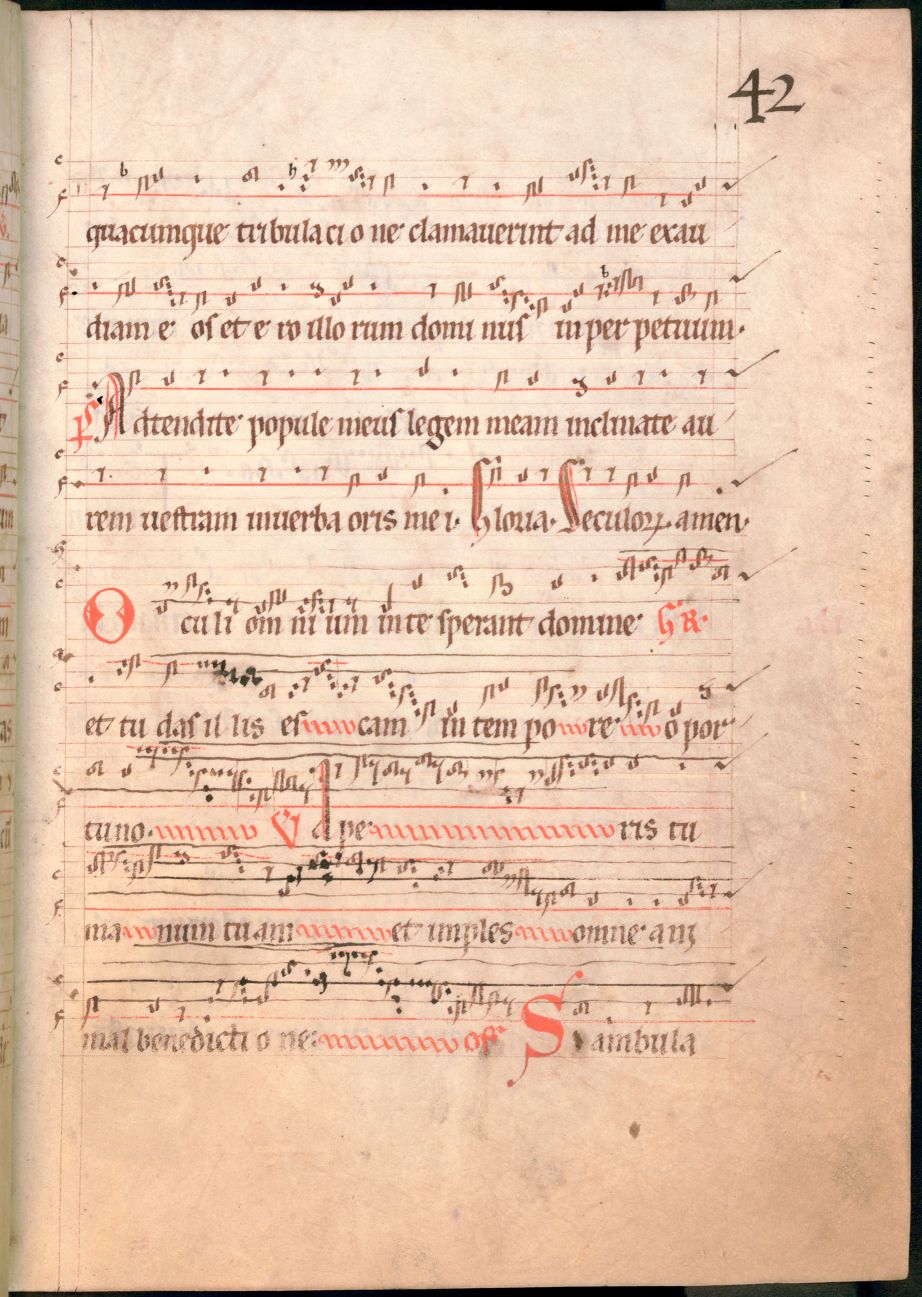 42
quacumque tribulaci o ne clamauerint ad me exau
diam e os et e ro illo rum domi nus in per petuum.
Ps Adtendite popule meus legem meam inclinate au
rem uestram inuerba oris me i. Gloria. Seculoꝝ. amen.
Oculi om ni um in te sperant domine GR.
et tu das il lis es cam in tem po re o por
tuno. V Ape ris tu
ma num tuam et imples omne ani
mal benedicti o ne. of Si ambula